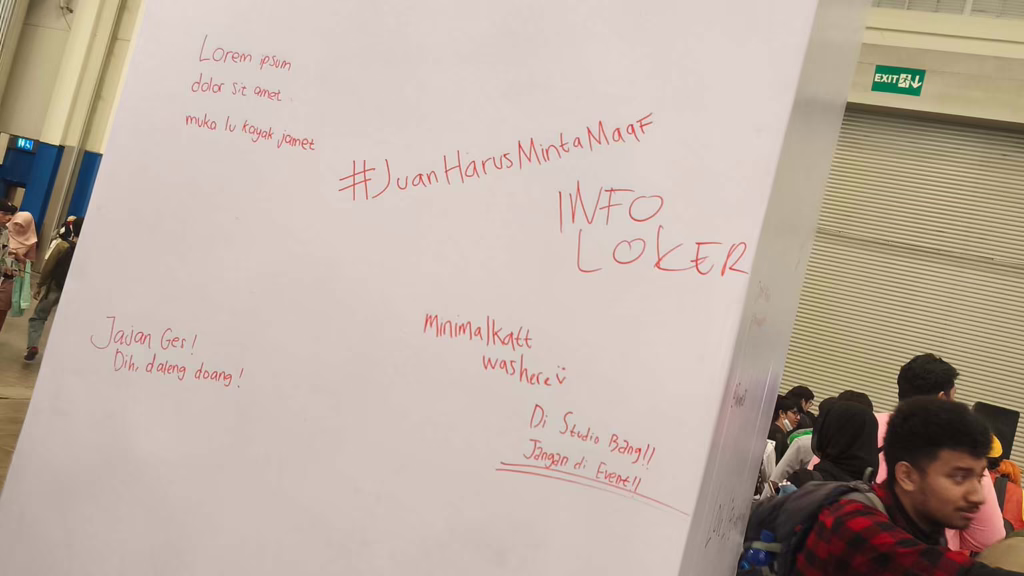 Lorem ipsum
dolor sit amet.
muka lu kayak jamet
#JuanHarusMintaMaaF
INFO
LOKER
Jajan Ges!
Dih, dateng doang!
minimalkatt
washere
Di Studio Bang!!
Jangan di Event!!
EXIT